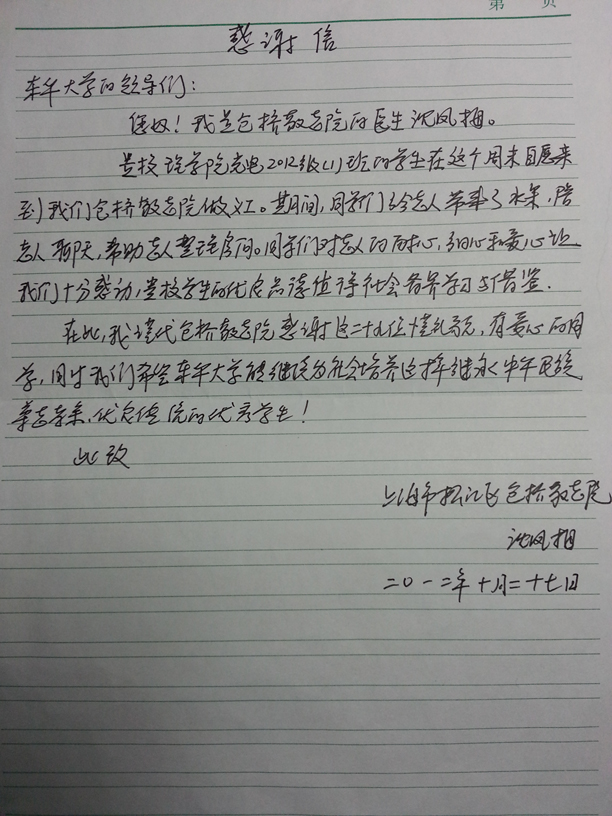 第 页
感谢信
东华大学的领导们：
您好！我是包桥敬老院的医生沈凤梅。
贵校理学院光电2012级(1)班的学生在这个周末自愿来
到我们包桥敬老院做义工。其间，同学们给老人带来了水果，陪
老人聊天，帮助老人整理房间。同学们对老人的耐心，细心和爱心让
我们十分感动，贵校学生的优良品德值得社会各界学习与借鉴.
在此，我谨代包桥敬老院感谢这二十九位，有爱心的同
学，同时我们希望东华大学能继续为社会培养这样继承中华民族
尊老亲，优良传统的优秀学生！
此致
上海市松江区包桥敬老院
沈凤梅
二〇一二年十月二十七日